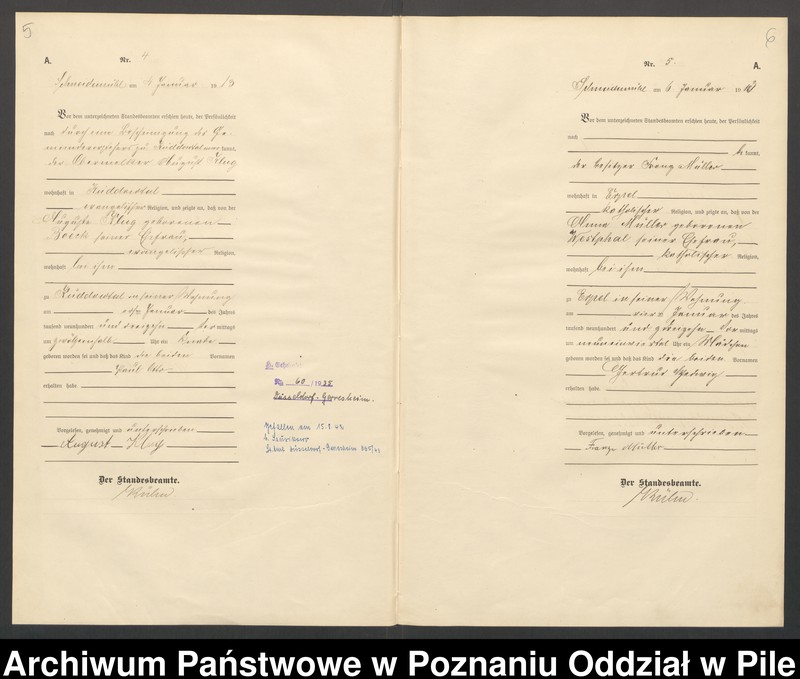 5
A.
Nr. 4
Schneidemühl am 4 Januar 1913
Vor dem unterzeichneten Standesbeamten erschien heute, der Persönlichkeit
nach durch eine Bescheinigung des Ge-
meindevorstehers zu Küddowtal kannt,
der Obermelker August Klug
wohnhaft in Küddowtal
evangelischer Religion, und zeigte an, daß von der
Auguste Klug geborenen
Boeck seiner Ehefrau,
evangelischer Religion,
wohnhaft bei ihm
zu Küddowtal in seiner Wohnung
am Januar des Jahres
tausend neunhundert und dreizehn mittags
um zwölfeinhalb Uhr ein Knabe
geboren worden sei und daß das Kind die beiden Vornamen
Paul Otto
erhalten habe
Vorgelesen, genehmigt und unterschrieben
August Klug
Der Standesbeamte.
Kühn
60/1935
Düsseldorf-Gerresheim.
Gefallen am
6
A.
Nr. 5
Schneidemühl am 6 Januar 19
Vor dem unterzeichneten Standesbeamten erschien heute, der Persönlichkeit
nach
be kannt,
der Besitzer Franz Müller
wohnhaft in Expel
katholischer Religion, und zeigte an, daß von der
Anna Müller geborenen
Westphal seiner Ehefrau,
katholischer Religion,
wohnhaft bei ihm
zu Expel in seiner Wohnung
am Januar des Jahres
tausend neunhundert und dreizehn vor mittags
um neuneinviertel Uhr ein Mädchen
geboren worden sei und daß das Kind die beiden Vornamen
Gertrud Hedwig
erhalten habe.
Vorgelesen, genehmigt und unterschrieben
Franz Müller
Der Standesbeamte.
Kühn.
Archiwum Państwowe w Poznaniu Oddział w Pile